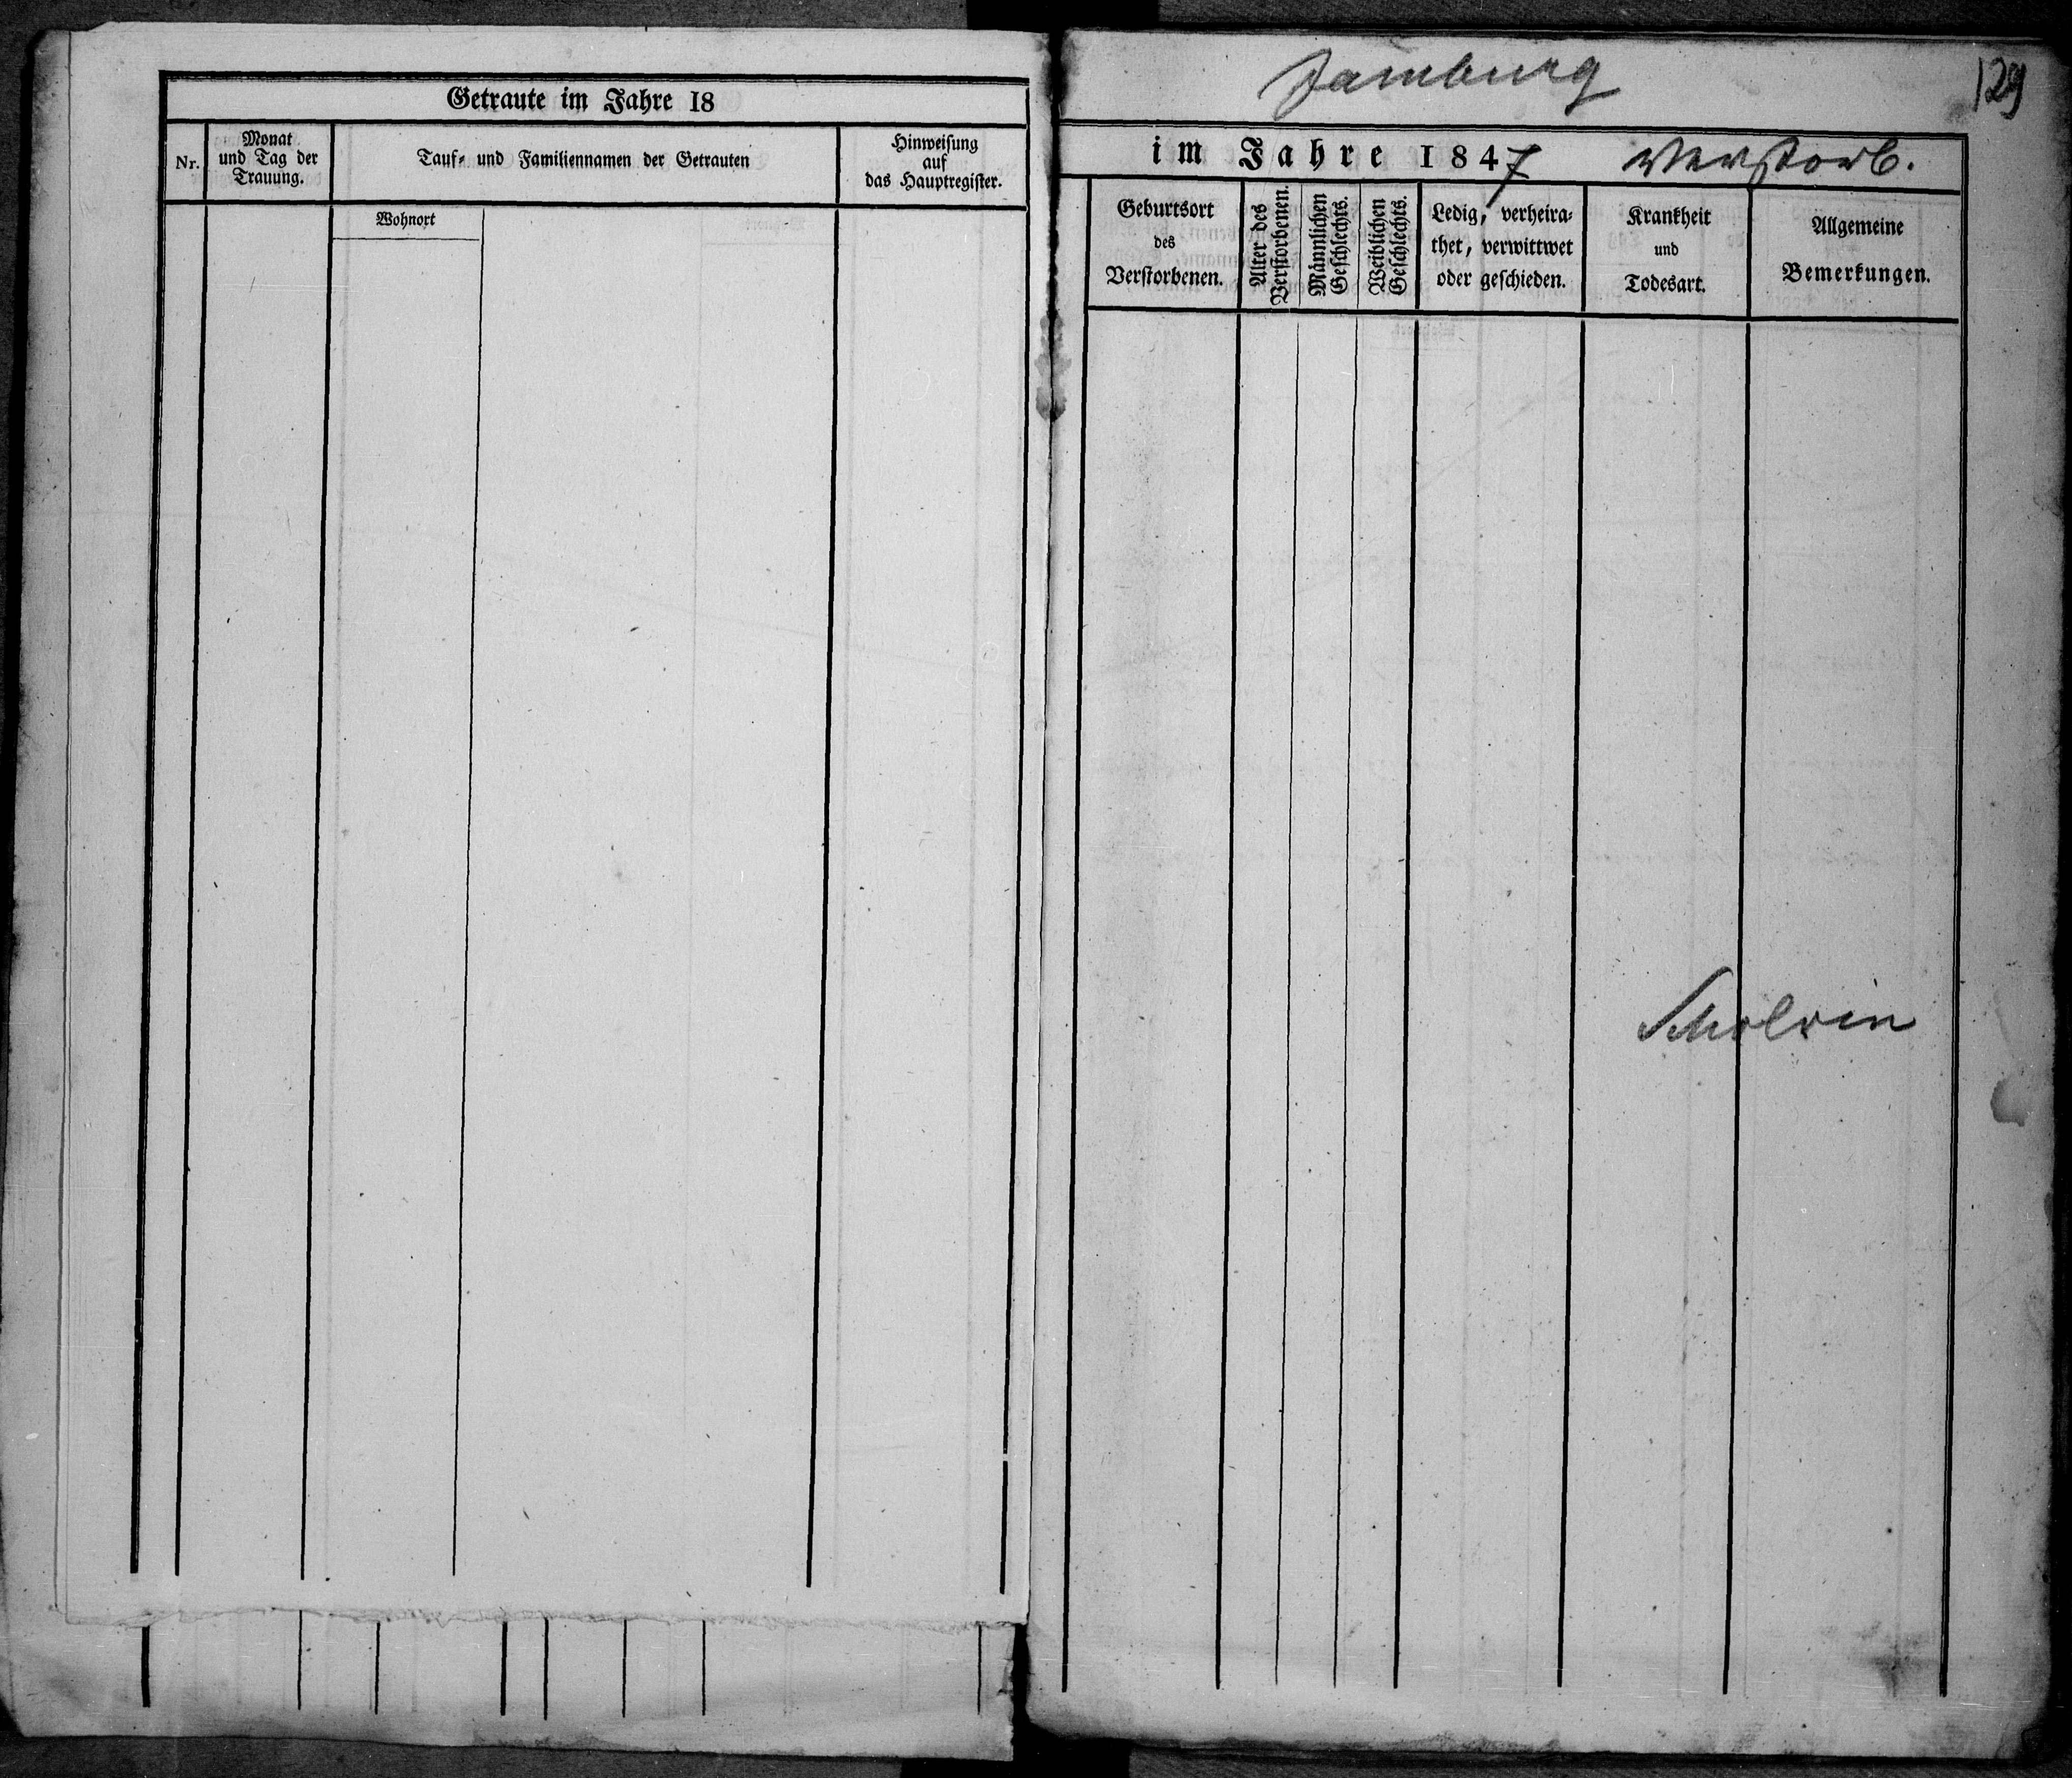 Getraute im Jahre 18
Nr.
Monat
und Tag der
Trauung.
Tauf- und Familiennamen der Getrauten
Hinweisung
auf
das Hauptregister.
Wohnort
Jamburg
129
im Jahre 1847 Verstorb.
Geburtsort
des
Verstorbenen.
Alter des
Verstorbenen.
Männlichen
Geschlechts.
Weiblichen
Geschlechts.
Ledig, verheira-
thet, verwittwet
oder geschieden.
Krankheit
und
Todesart.
Allgemeine
Bemerkungen.
Scholvin